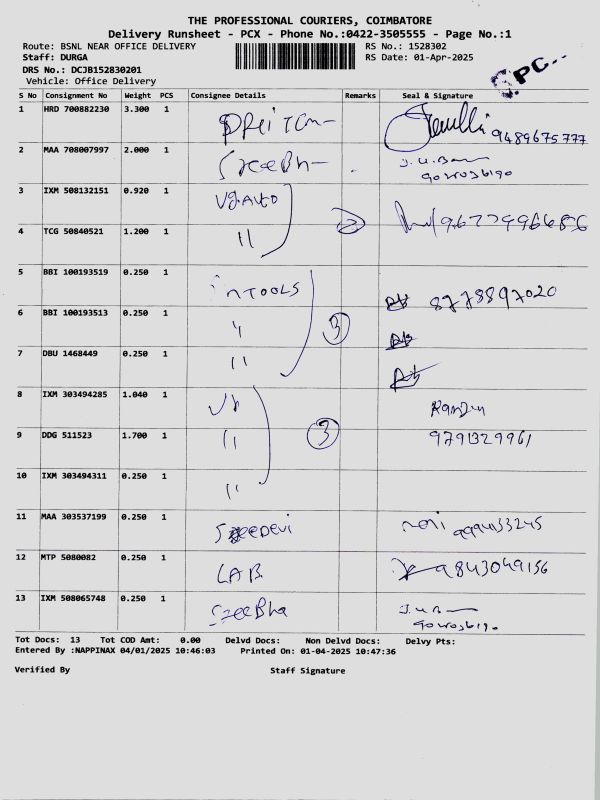 THE PROFESSIONAL COURIERS, COIMBATORE
Delivery Runsheet - PCX - Phone No.:0422-3505555 - Page No.:1
Route: BSNL NEAR OFFICE DELIVERY RS No.: 1528302
Staff: DURGA RS Date: 01-Apr-2025
DRS No.: DCJB152830201
Vehicle: Office Delivery
PC
S No Consignment No Weight PCS Consignee Details Remarks Seal & Signature
1 HRD 700882230 3.300 1 9489675777
2 MAA 708007997 2.000 1 SreeBh-
3 IXM 508132151 0.920 1 Vg.Auto
4 TCG 50840521 1.200 1 " 2 9677996686
5 BBI 100193519 0.250 1 inTOOLS 8778897020
6 BBI 100193513 0.250 1 " 3
7 DBU 1468449 0.250 1 "
8 IXM 303494285 1.040 1
9 DDG 511523 1.700 1 " 3 9791329961
10 IXM 303494311 0.250 1 "
11 MAA 303537199 0.250 1 SREEDEVI 9994133245
12 MTP 5080082 0.250 1 LAB 9843049156
13 IXM 508065748 0.250 1 SreeBha
Tot Docs: 13 Tot COD Amt: 0.00 Delvd Docs: Non Delvd Docs: Delvy Pts:
Entered By :NAPPINAX 04/01/2025 10:46:03 Printed On: 01-04-2025 10:47:36
Verified By Staff Signature